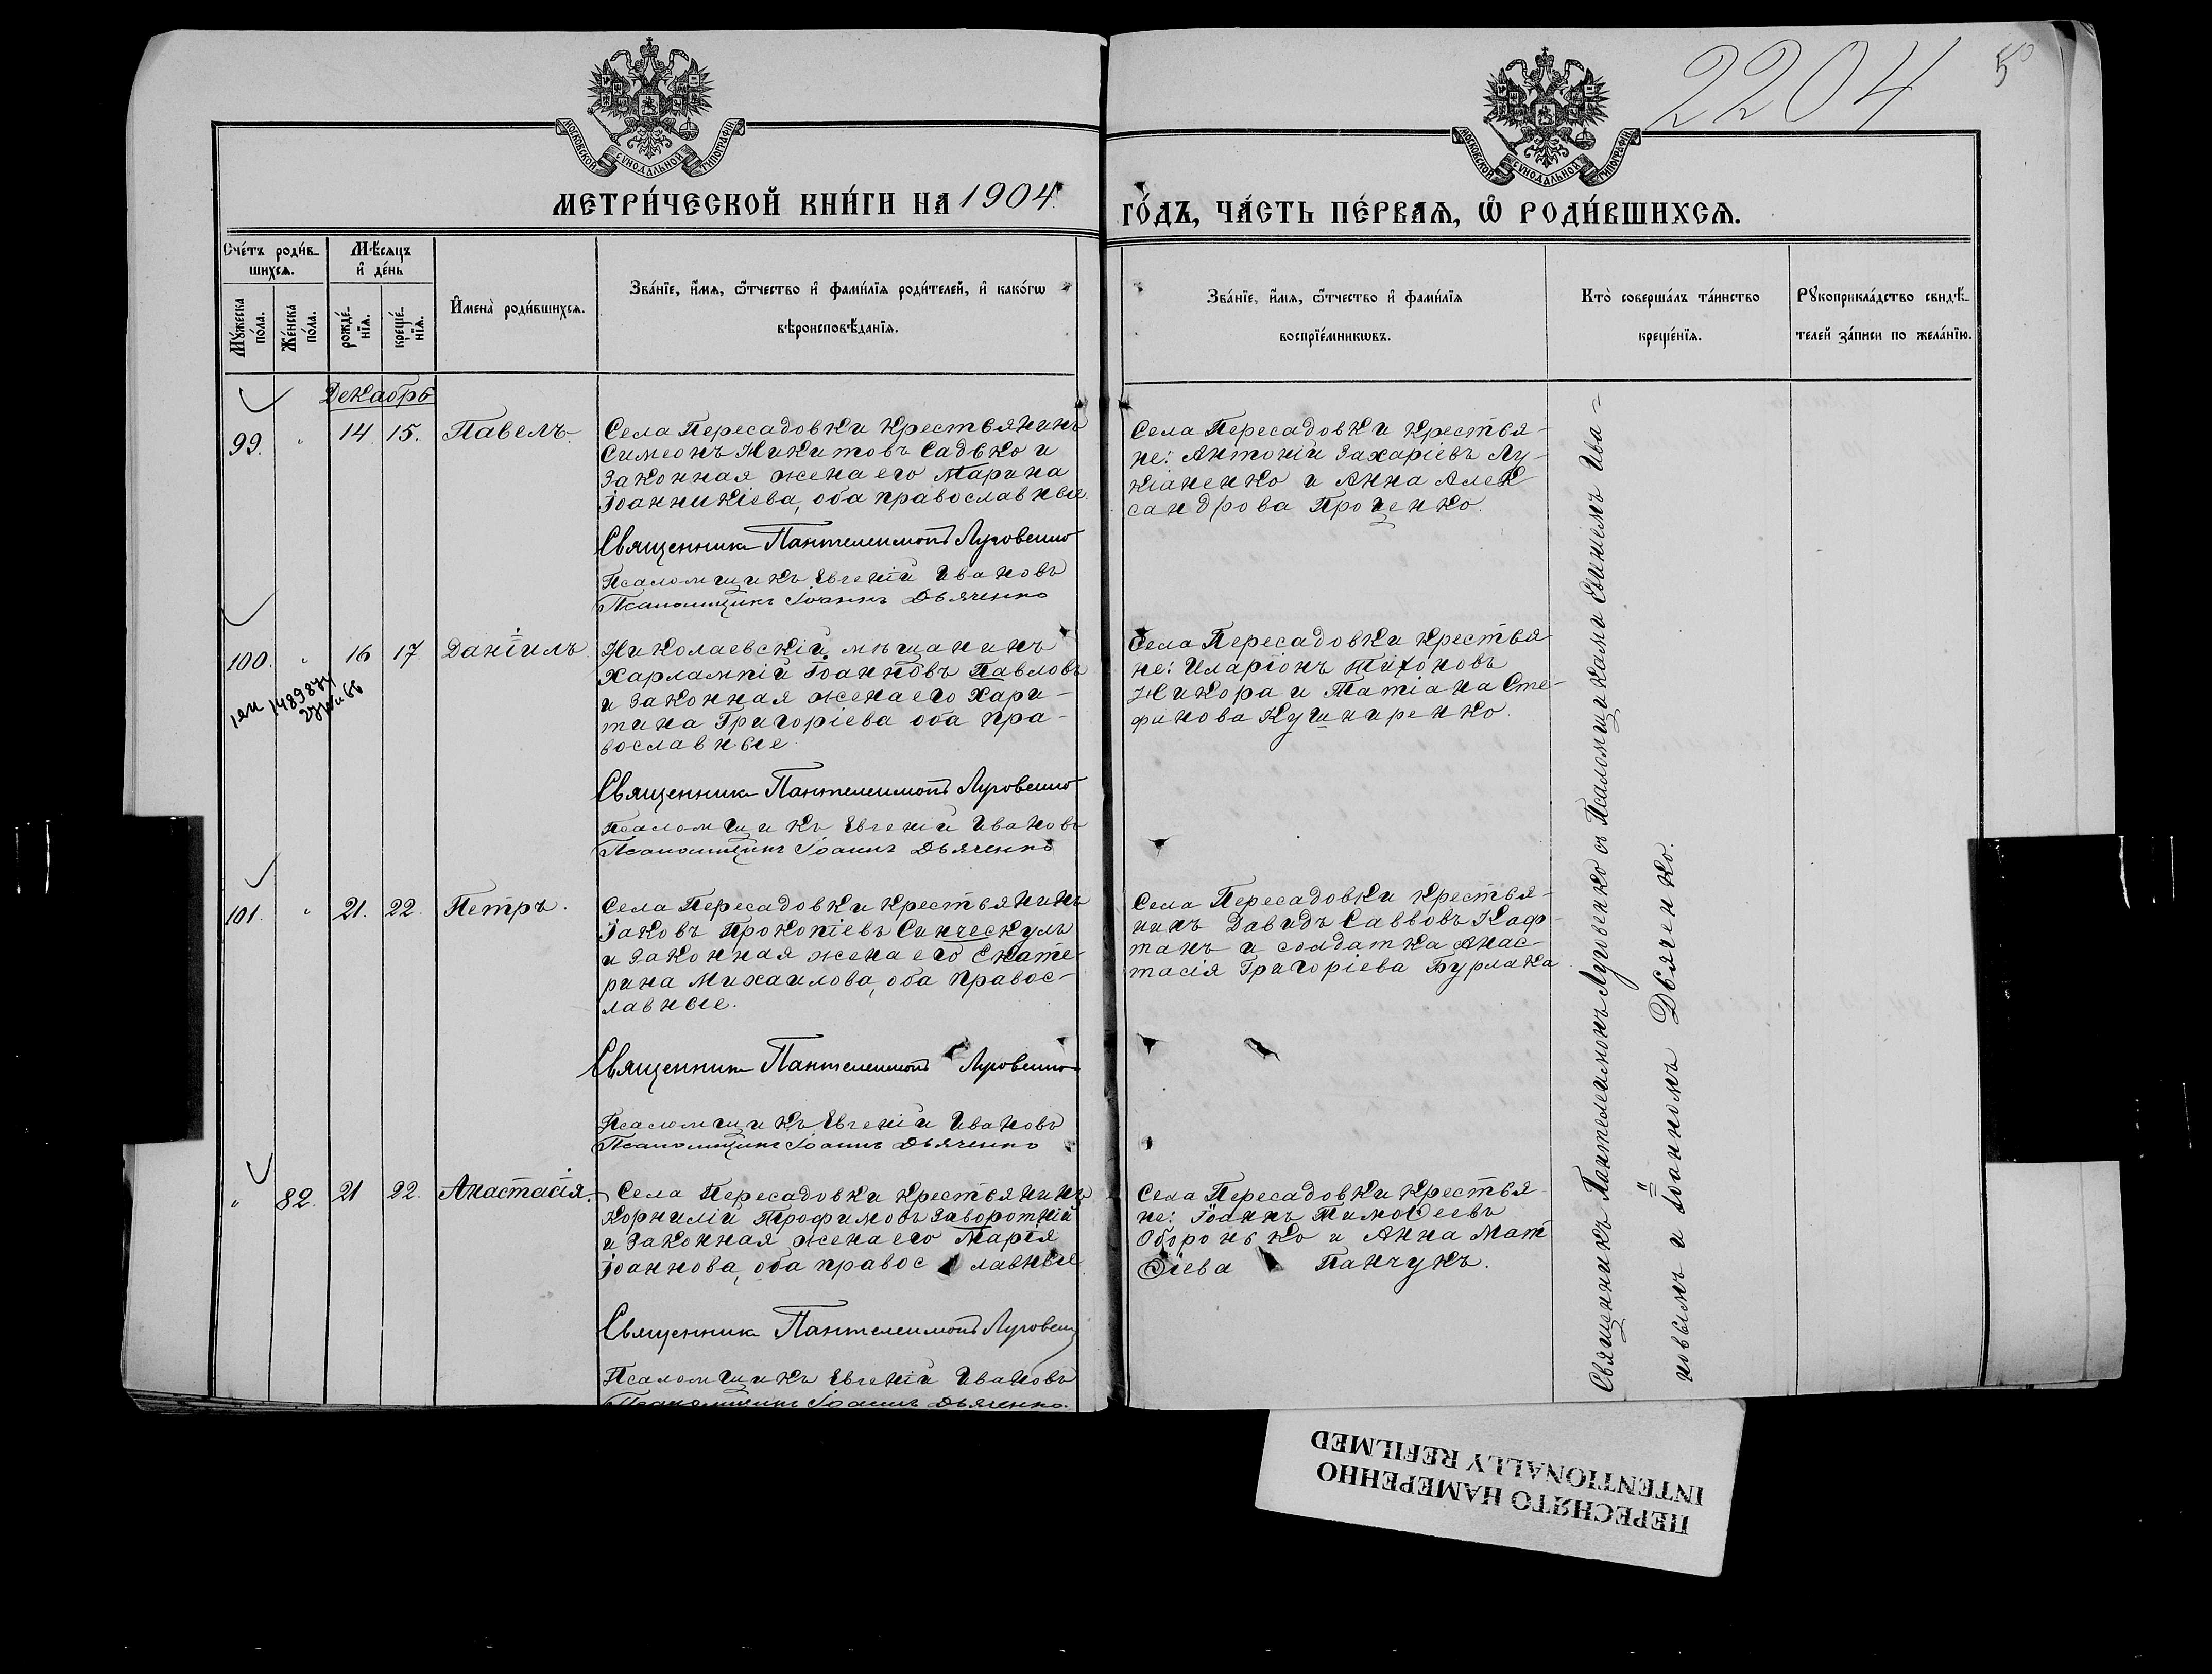 2204
5
МОСКОВСКОЙ СѴНОДАЛЬНОЙ ТИПОГРАФІИ
МОСКОВСКОЙ СѴНОДАЛЬНОЙ ТИПОГРАФІИ
МЕТРИ́ЧЕСКОЙ КНИ́ГИ НА 1904
ГО́ДЪ, ЧА́СТЬ ПЕ́РВАѦ, Ѽ РОДИ́ВШИХСѦ.
Сче́тъ роди́в-
шихсѧ.
Мѣ́сѧцъ
и҆ де́нь
Мꙋ́жеска
по́ла.
Же́нска
по́ла.
рожде́-
нїѧ.
креще́-
нїѧ.
И҆мена̀ роди́вшихсѧ.
Зва́нїе, и҆́мѧ, ѻ҆́тчество и҆ фами́лїѧ роди́телей, и҆ како́гѡ
вѣроисповѣ́данїѧ.
Зва́нїе, и҆́мѧ, ѻ҆́тчество и҆ фами́лїѧ
воспрїе́мникѡвъ.
Кто̀ соверша́лъ та́инство
креще́нїѧ.
Рꙋкоприкла́дство свидѣ́-
телей за́писи по жела́нїю.
Декабрь
99. " 14 15. Павелъ.
Села Пересадовки крестьянинъ
Симеонъ Никитовъ Садько и
законная жена его Марина
Іоанникіева, оба православные.
Священникъ Пантелеимонъ Луговенко
Псаломщикъ Евгеній Ивановъ
Псаломщикъ Іоаннъ Дьяченко
Села Пересадовки крестья-
не: Антоній Захаріевъ Лу-
кіаненко и Анна Алек-
сандрова Проценко.
100. " 16 17 Даніилъ
Николаевскій мѣщанинъ
Харлампій Іоанновъ Павловъ
и законная жена его Хари-
тина Григоріева оба пра-
вославные.
Священникъ Пантелеимонъ Луговенко
Псаломщикъ Евгеній Ивановъ
Псаломщикъ Іоаннъ Дьяченко
Села Пересадовки крестья
не: Иларіонъ Тихоновъ
Никора и Татіана Сте-
финова Кушниренко.
101. " 21. 22. Петръ.
Села Пересадовки крестьянинъ
Іаковъ Прокопіевъ Синческулъ
и законная жена его Екате-
рина Михаилова, оба правос-
лавные.
Священникъ Пантелеимонъ Луговенко
Псаломщикъ Евгеній Ивановъ
Псаломщикъ Іоаннъ Дьяченко
Села Пересадовки крестья-
нинъ Давидъ Саввовъ Каф-
танъ и солдатка Анас-
тасія Григоріева Бурлака
" 82. 21 22. Анастасія.
Села Пересадовки крестьянинъ
Корнилій Трофимовъ Заворотній
и законная жена его Марія
Іоаннова, оба правос лавные
Священникъ Пантелеимонъ Луговен
Псаломщикъ Евгеній Ивановъ
Псаломщикъ Іоаннъ Дьяченко.
Села Пересадовки крестья-
не: Іоаннъ Тимоѳеевъ
Оборонько и Анна Мат
ѳіева Панчукъ.
Священникъ Пантелеимонъ Луговенко съ Псаломщиками Евгеніемъ Ива-
новымъ и Іоанномъ Дьяченко.
ПЕРЕСНЯТО НАМЕРЕННО
INTENTIONALLY REFILMED